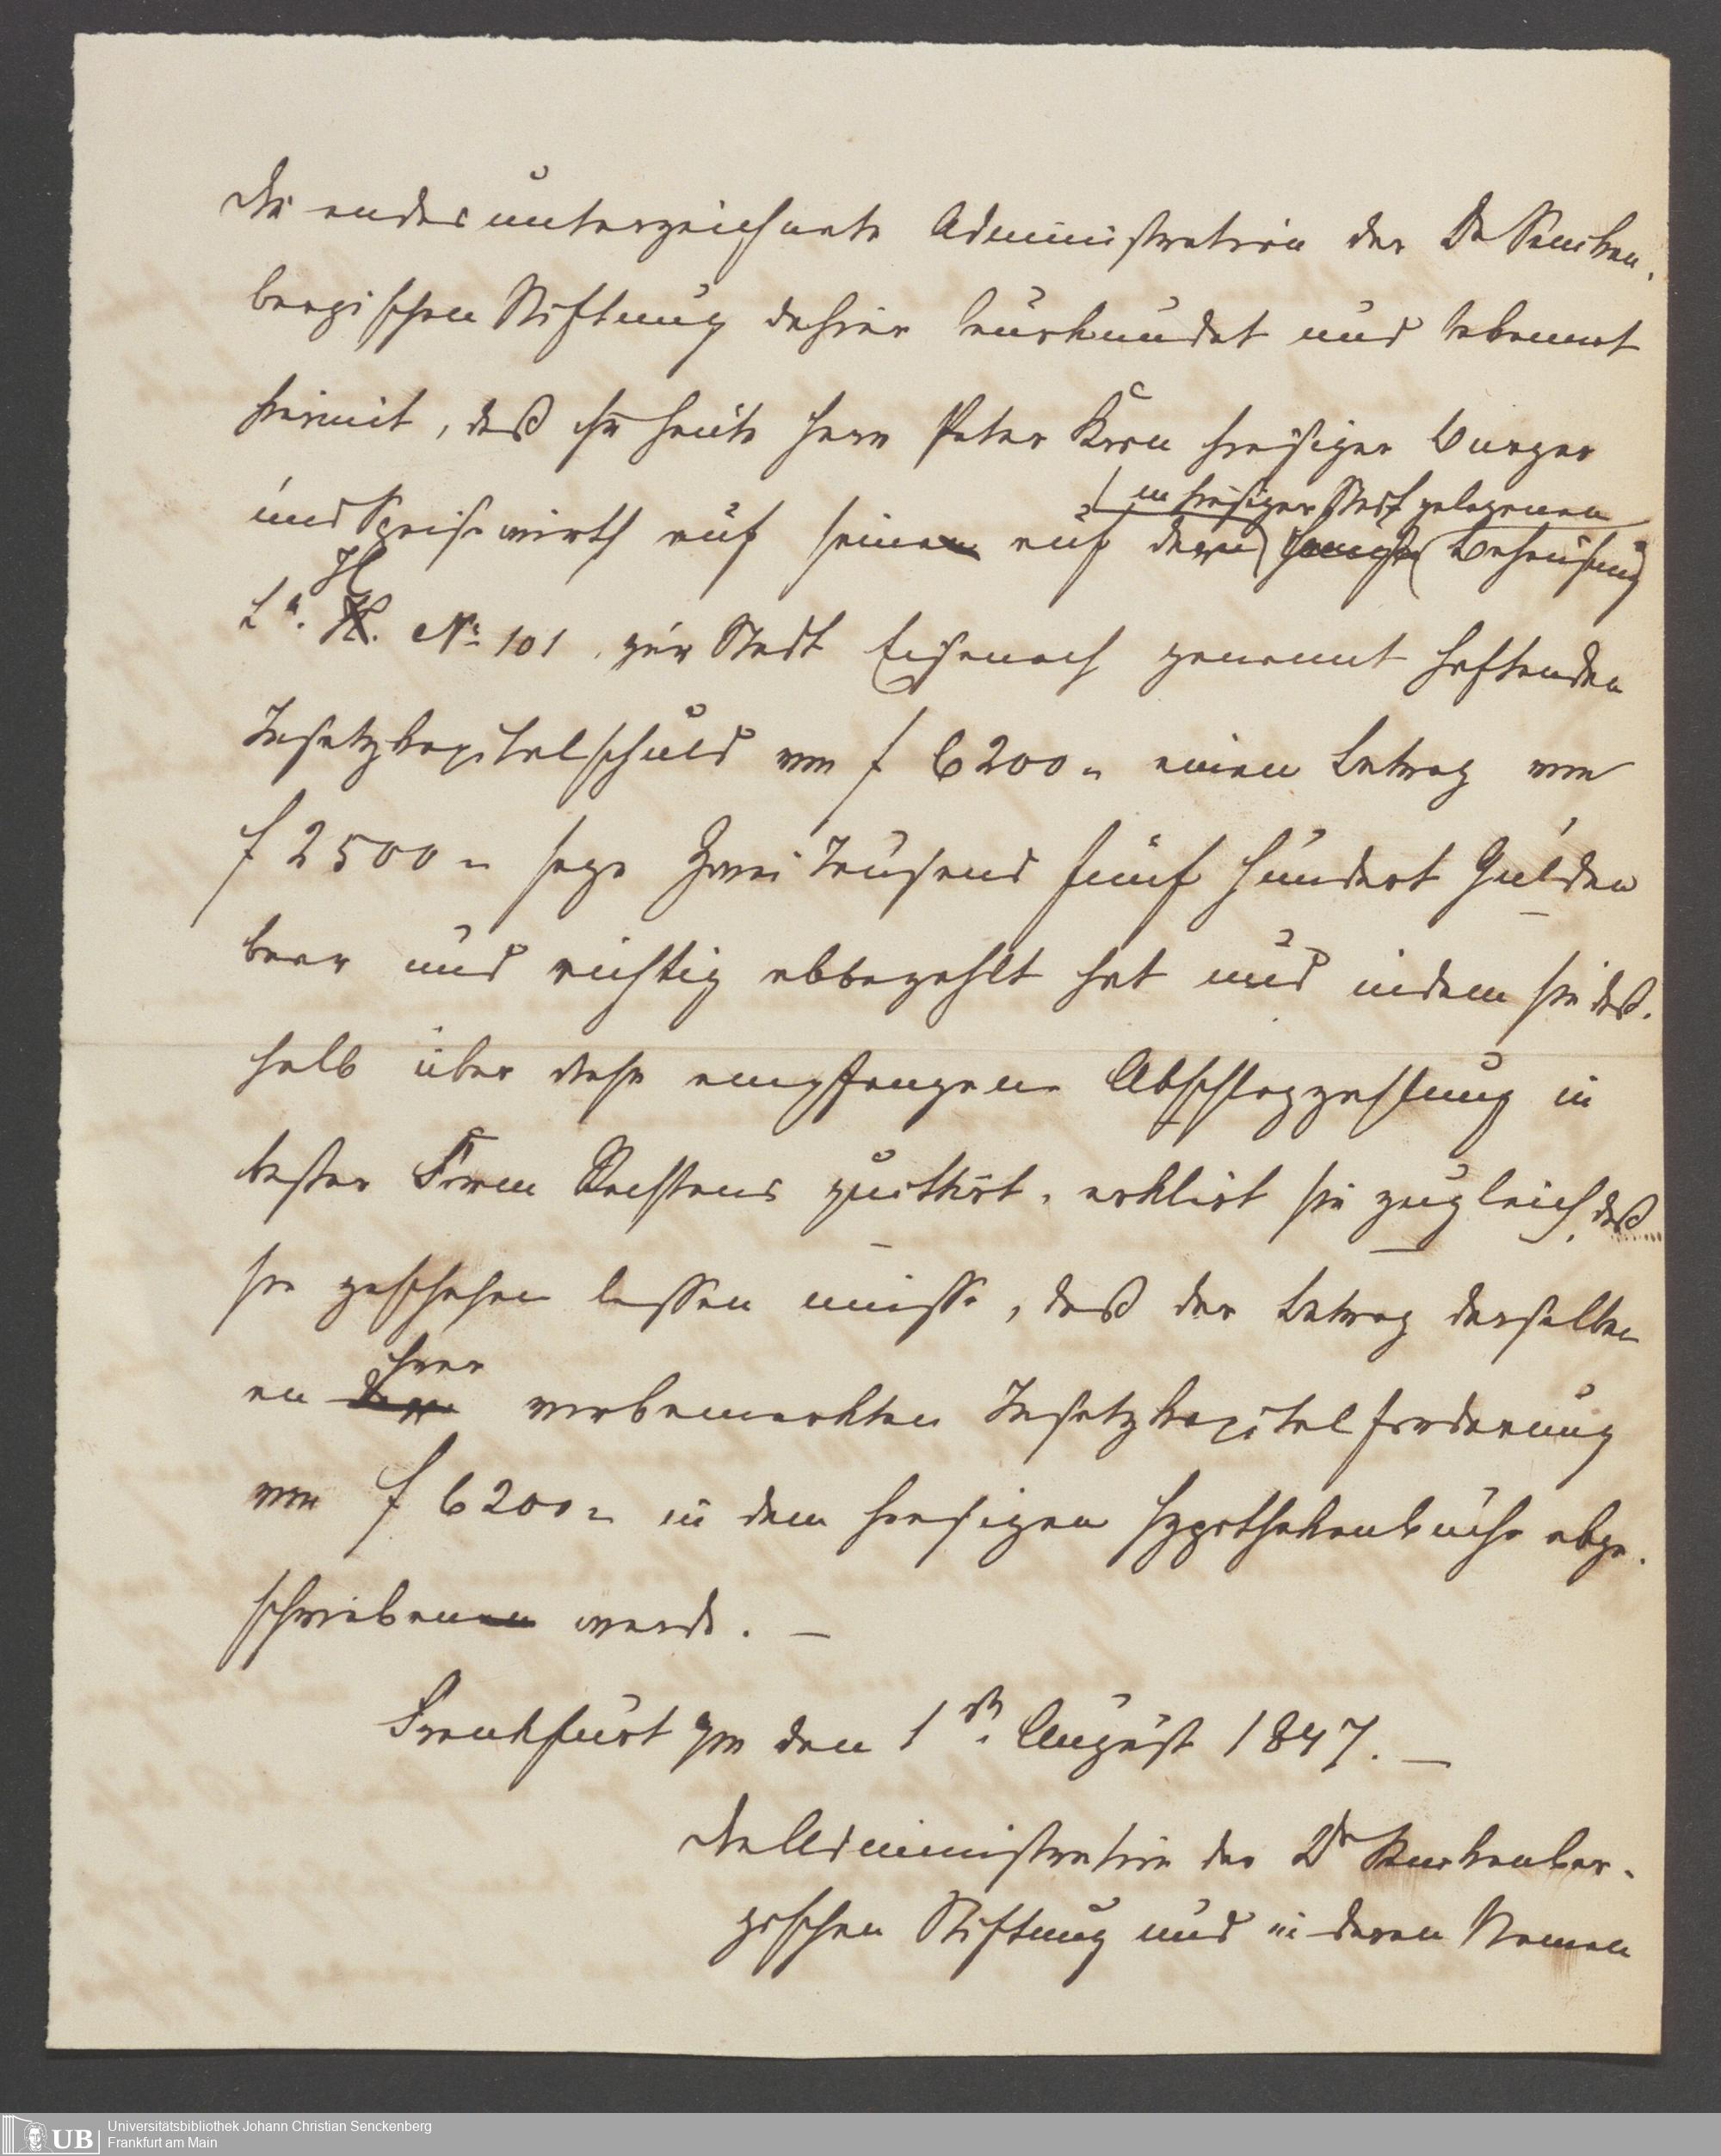 Die endesunterzeichnete Administration der Dr Senken-
bergischen Stiftung dahier beurkundet und bekennt
hiermit, daß ihr heute Herr Peter Korn hiesiger Burger
in hiesiger Stadt gelegenen
und Speisewirth auf seine auf deren Behausung
Lª. H. No 101. zur Stadt Eisenach genannt haftenden
Insatzkapitalschuld von f 6200 " einen Betrag von
f 2500 " sage Zwei Tausend fünf hundert Gulden
baar und richtig abbezahlt hat und indem sie deß-
halb über diese empfangene Abschlagzahlung in
bester Form Rechtens quittirt, erklärt sie zugleich, daß
sie geschehen lassen müsse, daß der Betrag derselben
ihrer
an vorbemerkten Insatzkapitalforderung
von f 6200 " in dem hiesigen Hypothekenbuche abge-
schrieben werde. —
Frankfurt a/m den 1st. August 1847. —
Die Administration der Dr Senkenber-
gischen Stiftung und in deren Namen
Universitätsbibliothek Johann Christian Senckenberg
Frankfurt am Main
UB